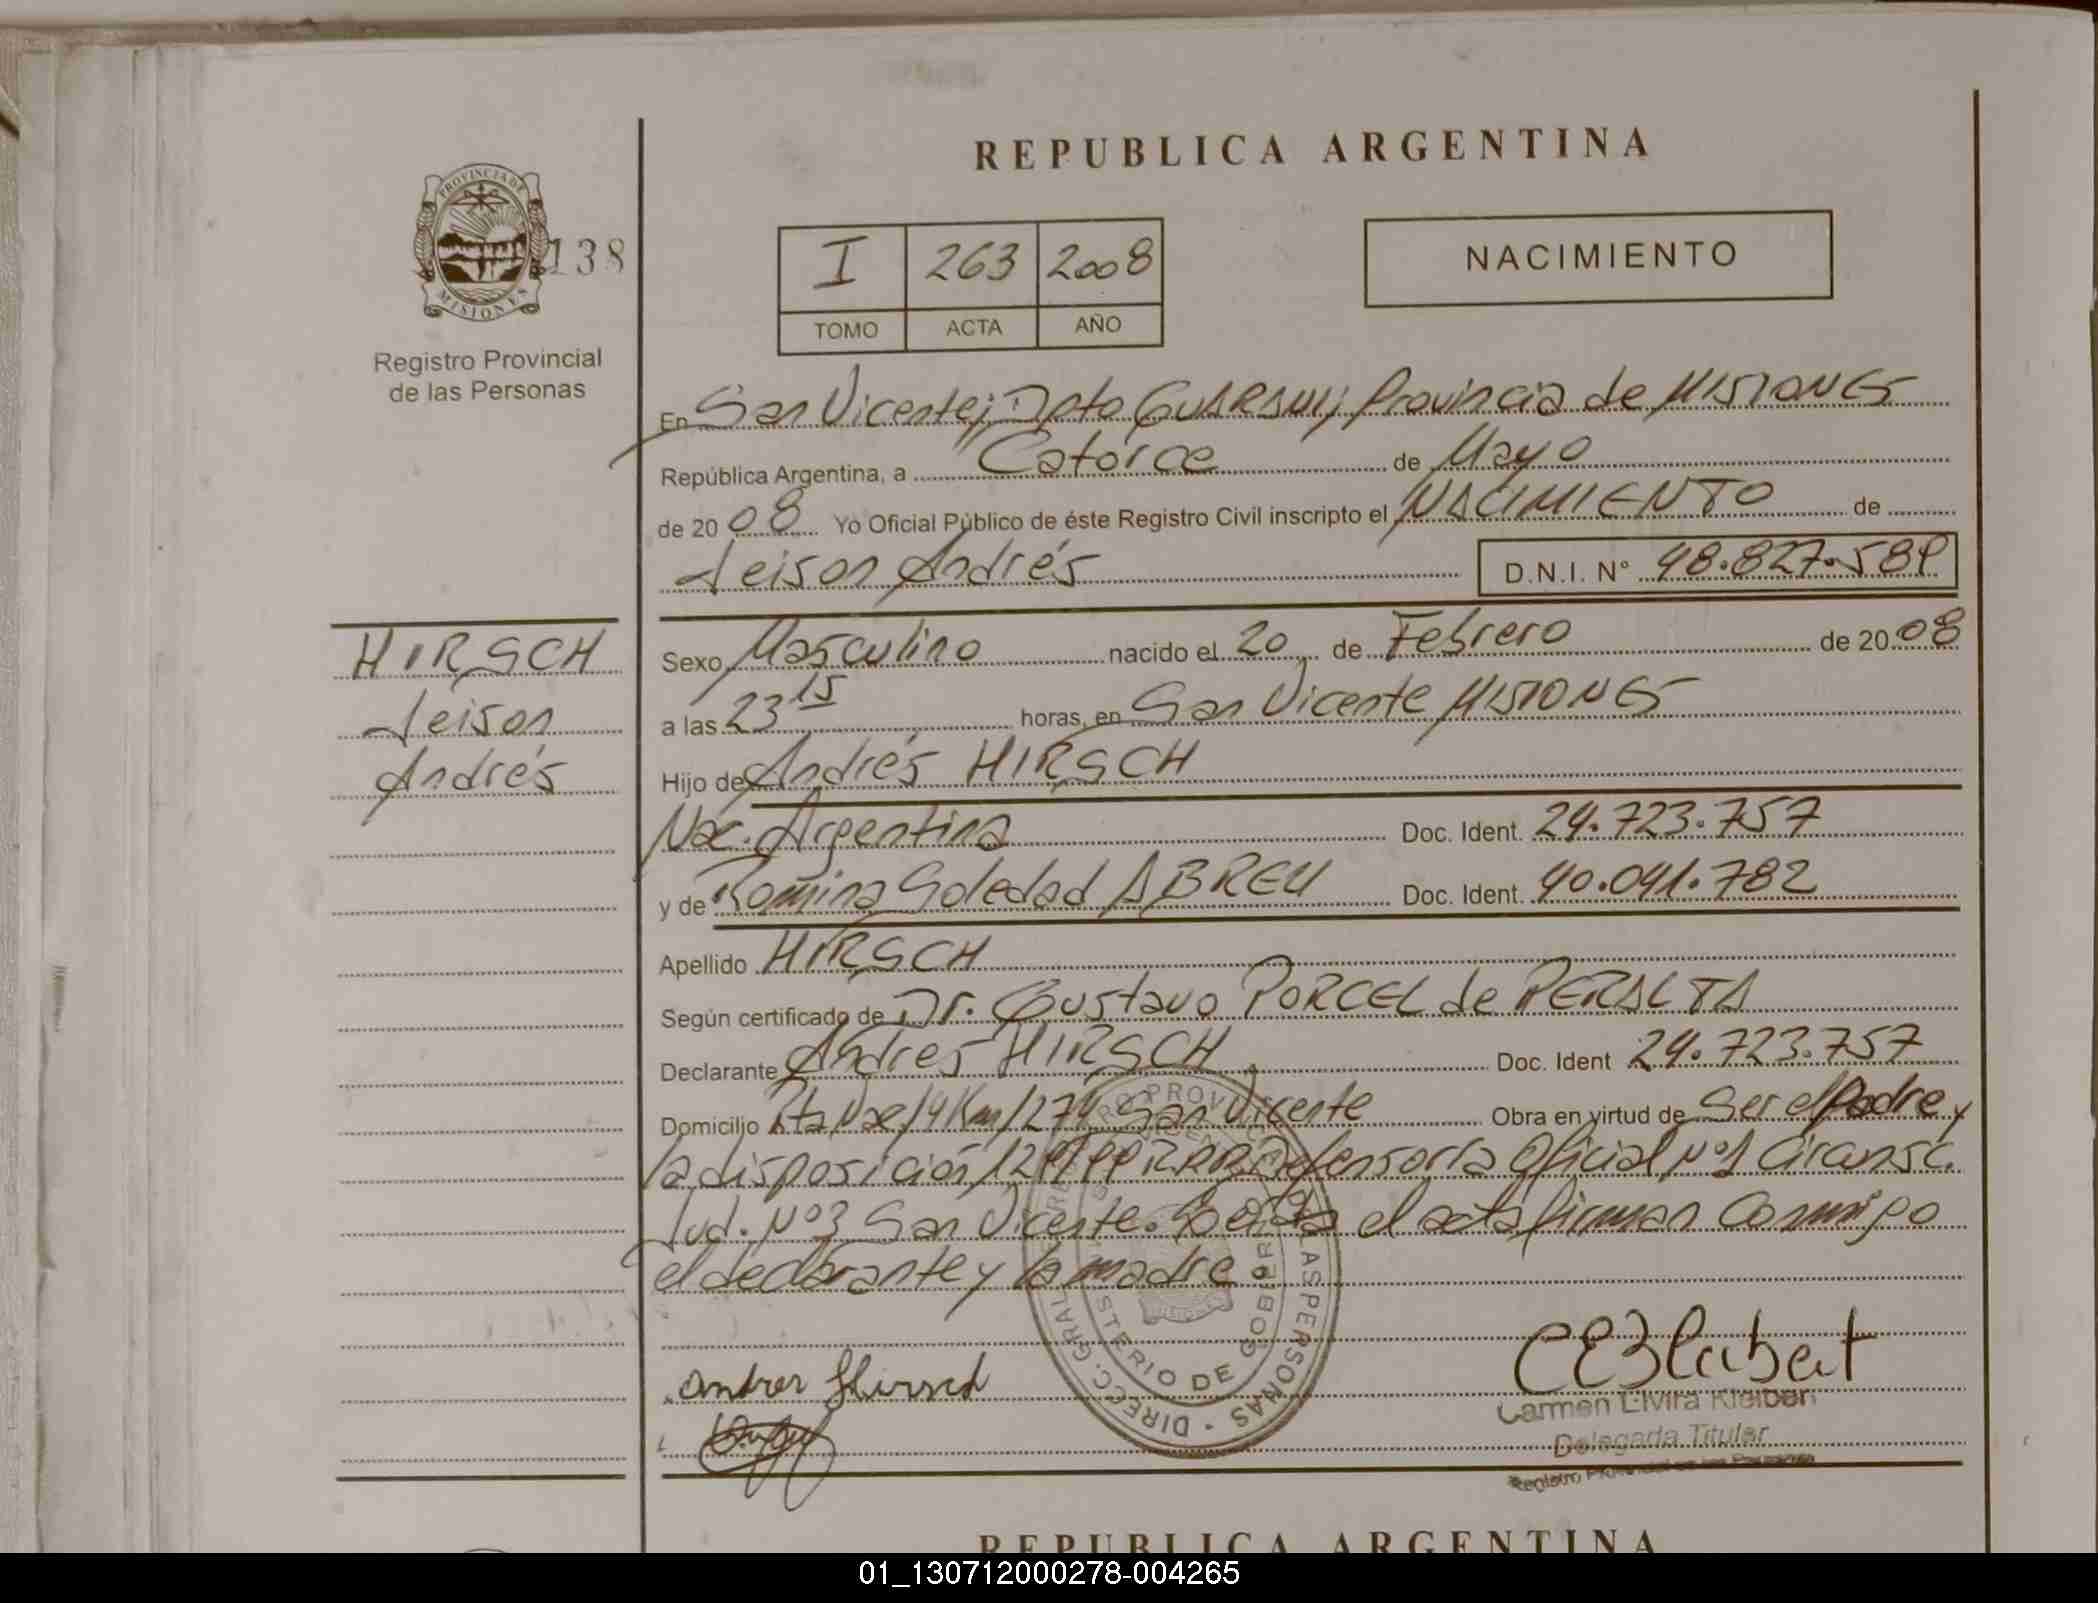 REPUBLICA ARGENTINA
PROVINCIA DE
MISIONES
138
Registro Provincial
de las Personas
I 263 2008
TOMO ACTA AÑO
NACIMIENTO
En San Vicente; Dpto GUARANI; Provincia de MISIONES
República Argentina, a Catorce de Mayo
de 2008 Yo Oficial Público de éste Registro Civil inscripto el NACIMIENTO de
Jeison Andrés D.N.I. N° 48.827.589
HIRSCH
Jeison
Andrés
Sexo Masculino nacido el 20 de Febrero de 2008
a las 23 15 horas, en San Vicente MISIONES
Hijo de Andrés HIRSCH
Nac. Argentina Doc. Ident. 24.723.757
y de Romina Soledad ABREU Doc. Ident. 40.041.782
Apellido HIRSCH
Según certificado de Dr. Gustavo PORCEL de PERALTA
Declarante Andrés HIRSCH Doc. Ident 24.723.757
Domicilio Rta Nac/14 Km/274 San Vicente Obra en virtud de Ser el Padre y
la disposición Defensoría Oficial N°1 Circunsc.
Jud. N°3 San Vicente. el acta firman conmigo
el declarante y la madre.
DIRECC. GRAL. PROVINC LAS PERSONAS
MINISTERIO DE GOBIER
Andres Hirsch
Carmen Elvira Kleibert
Delegada Titular
Registro Provincial de las Personas
REPUBLICA ARGENTINA
01_130712000278-004265